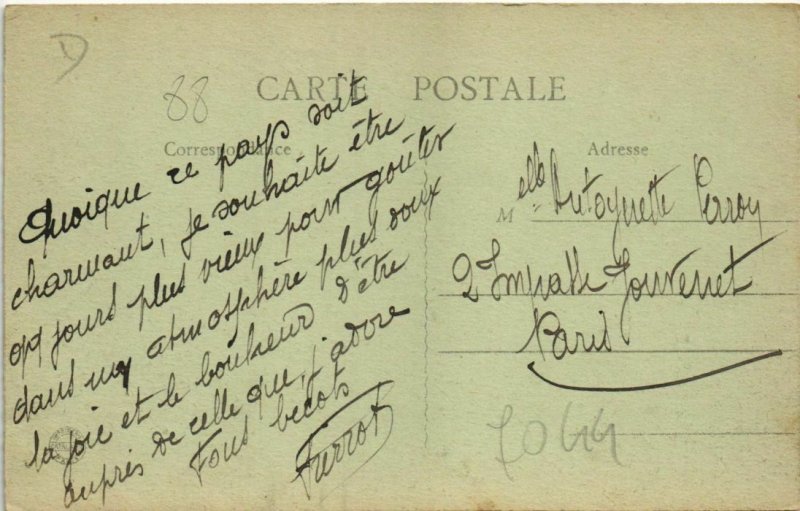 D
88
CARTE POSTALE
Correspondance
Quoique ce pays soit
charmant, je souhaite être
jours plus vieux pour goûter
dans une atmosphère plus doux
la joie et le bonheur d'être
auprès de celle que j'adore
Fous bécots
Pierrot
Adresse
Melle Antoynette Perroy
2 Impasse Jouvenet
Paris